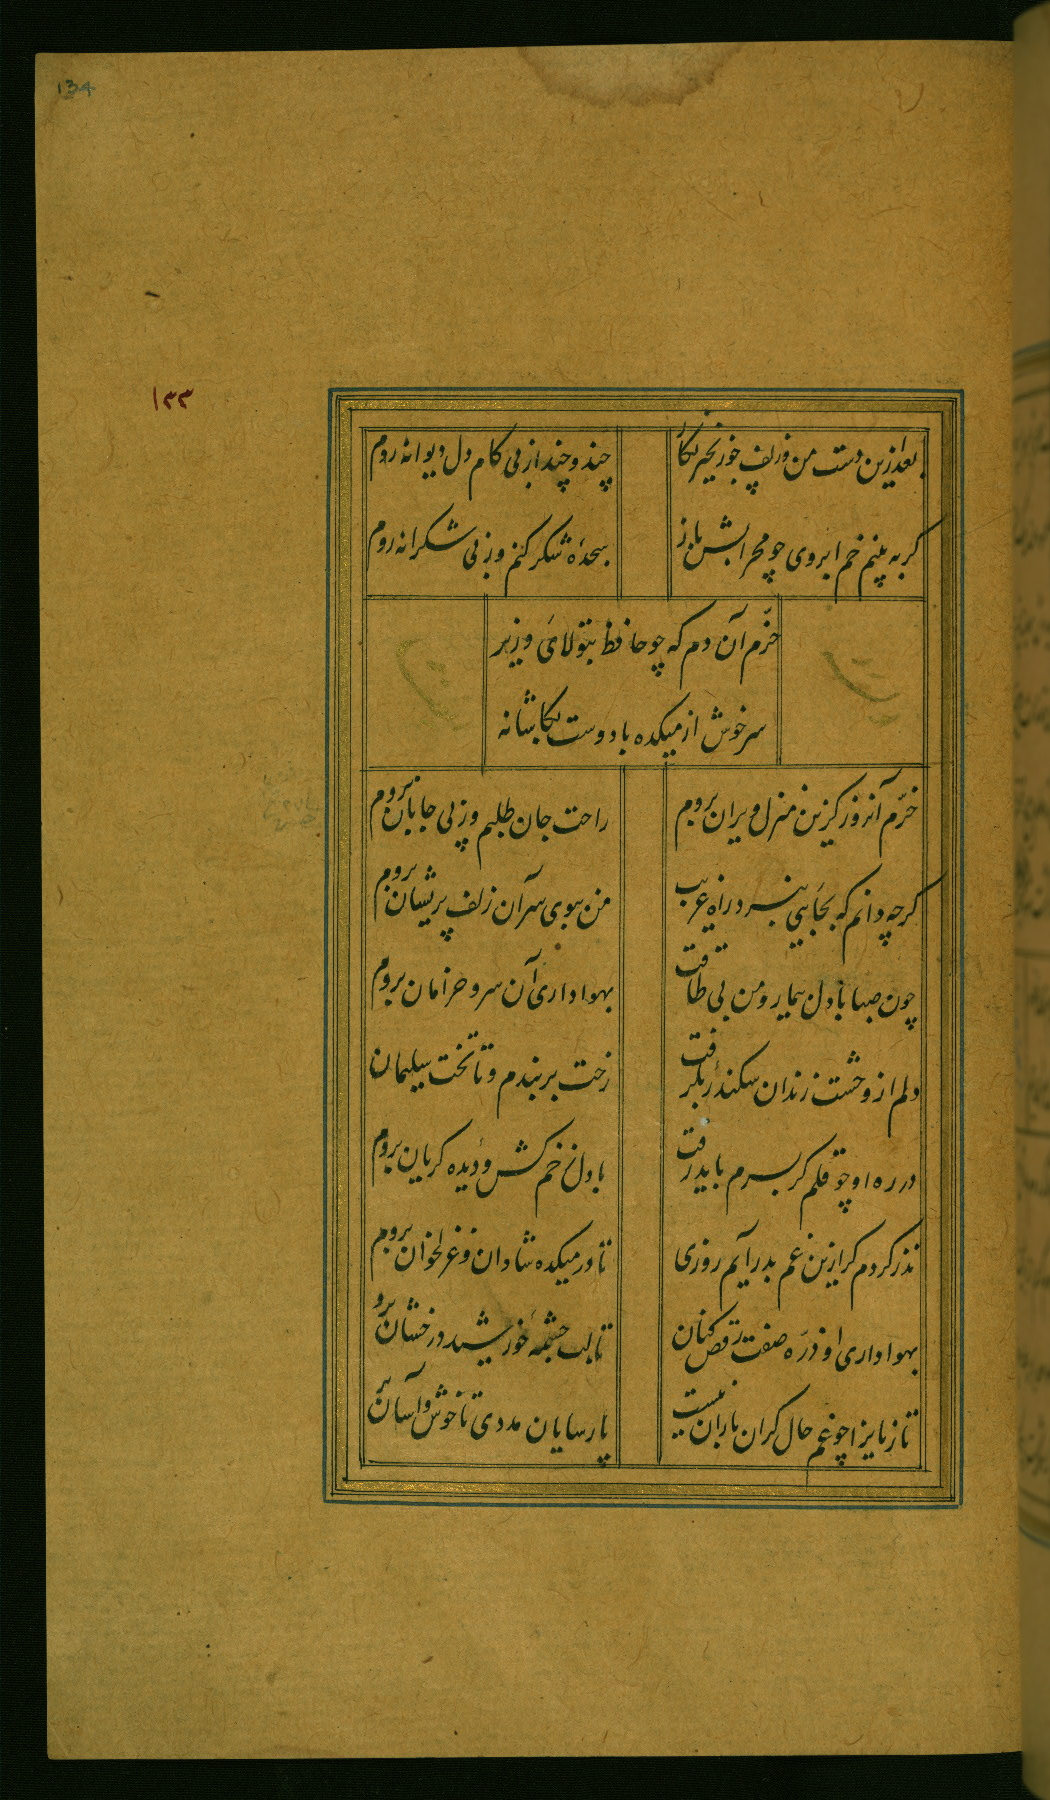 134
١٣٣
بعد ازین دست من و زلف چو زنجیر نگار
چند و چند از پی کام دل دیوانه روم
کر به بینم خم ابروی چو محرابش باز
سجدهٔ شکر کنم وز پی شکرانه روم
خرّم آن دم که چو حافظ بتولای وزیر
سرخوش از میکده با دوست بکاشانه
خرّم آنروز کزین منزل ویران بروم
راحت جان طلبم وز پی جانان بروم
کرچه دانم که بجایی نبرد راه غریب
من ببوی سر آن زلف پریشان بروم
چون صبا با دل بیمار و تن بی طاقت
بهواداری آن سرو خرامان بروم
دلم از وحشت زندان سکندر بکرفت
رخت بربندم و تا تخت سلیمان
در ره او چو قلم کر بسرم باید رفت
با دل زخم کش و دیده کریان بروم
نذر کردم کر ازین غم بدر آیم روزی
تا در میکده شادان و غزلخوان بروم
بهواداری او ذرّه صفت رقص کنان
تا لب چشمهٔ خورشید درخشان برو
تازیانرا چو غم حال کران باران نیست
پارسایان مددی تا خوش و آسان بر